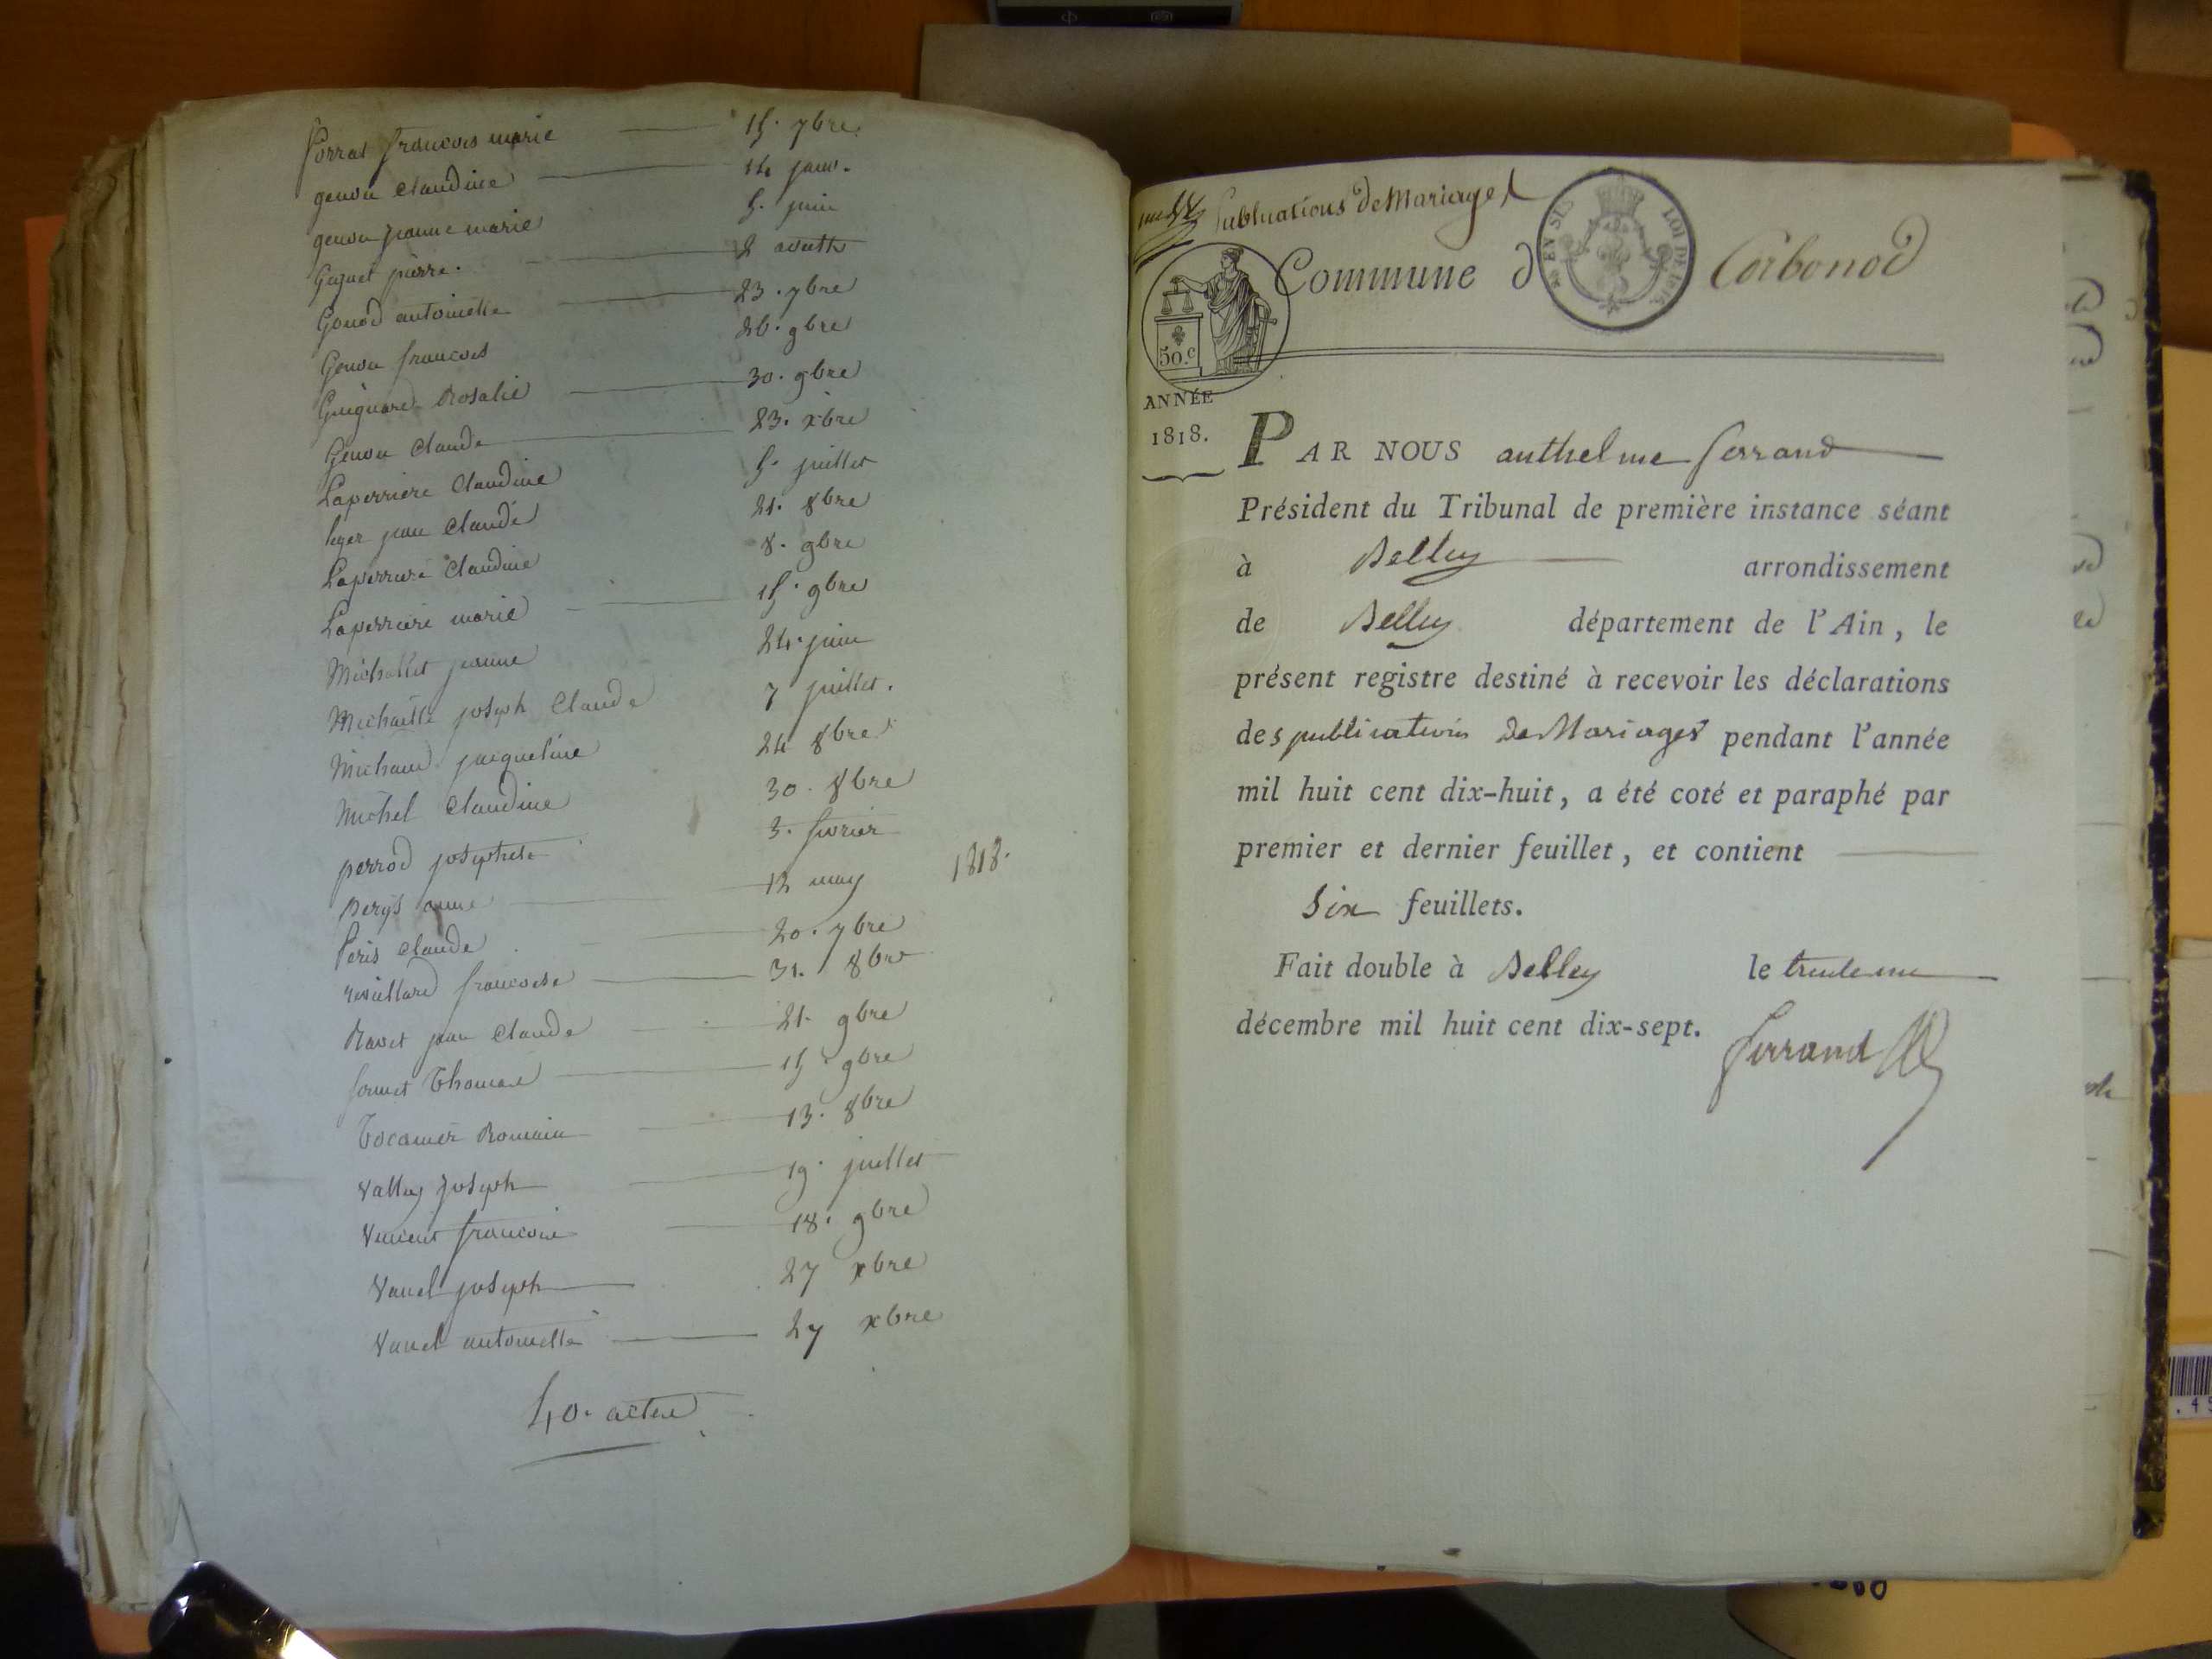 françois marie — 15. 7bre
genou Claudine — 14 janv.
genou jeanne marie 5. juin
pierre. — 2 aoust
Gonod antoinette — 23. 7bre
Genou francois 26. 9bre
Guignard Rosalie — 30. 9bre
Genou Claude — 23. xbre
Laperriere Claudine 5. juillet
leger jean Claude 21. 8bre
Laperriere Claudine 8. 9bre
Laperriere marie — 15. 9bre
Michallet jeanne 24. juin
Michaille joseph Claude 7 juillet.
Michaud jacqueline 24 8bre
Michel Claudine 30. 8bre
perrod josephete 3. fevrier
anne — 12 may 1818.
Peris Claude — 20. 7bre
francoise — 31. 8bre
Ravet jean Claude — 21. 9bre
Thomas — 15 9bre
Romain — 13. 8bre
Vallay joseph — 19. juillet
Vincent francoise — 18. 9bre
Vanel joseph — 27 xbre
Vanel antoinette — 27 xbre
40. actes
Publications de Mariages
Commune d Corbonod
EN SUS
LOI DE 1816
50.c
ANNÉE
1818.
PAR NOUS anthelme ferrand
Président du Tribunal de première instance séant
à Belley arrondissement
de Belley département de l'Ain, le
présent registre destiné à recevoir les déclarations
des publications De Mariages pendant l'année
mil huit cent dix-huit, a été coté et paraphé par
premier et dernier feuillet, et contient
Six feuillets.
Fait double à Belley le trente un
décembre mil huit cent dix-sept.
ferrand